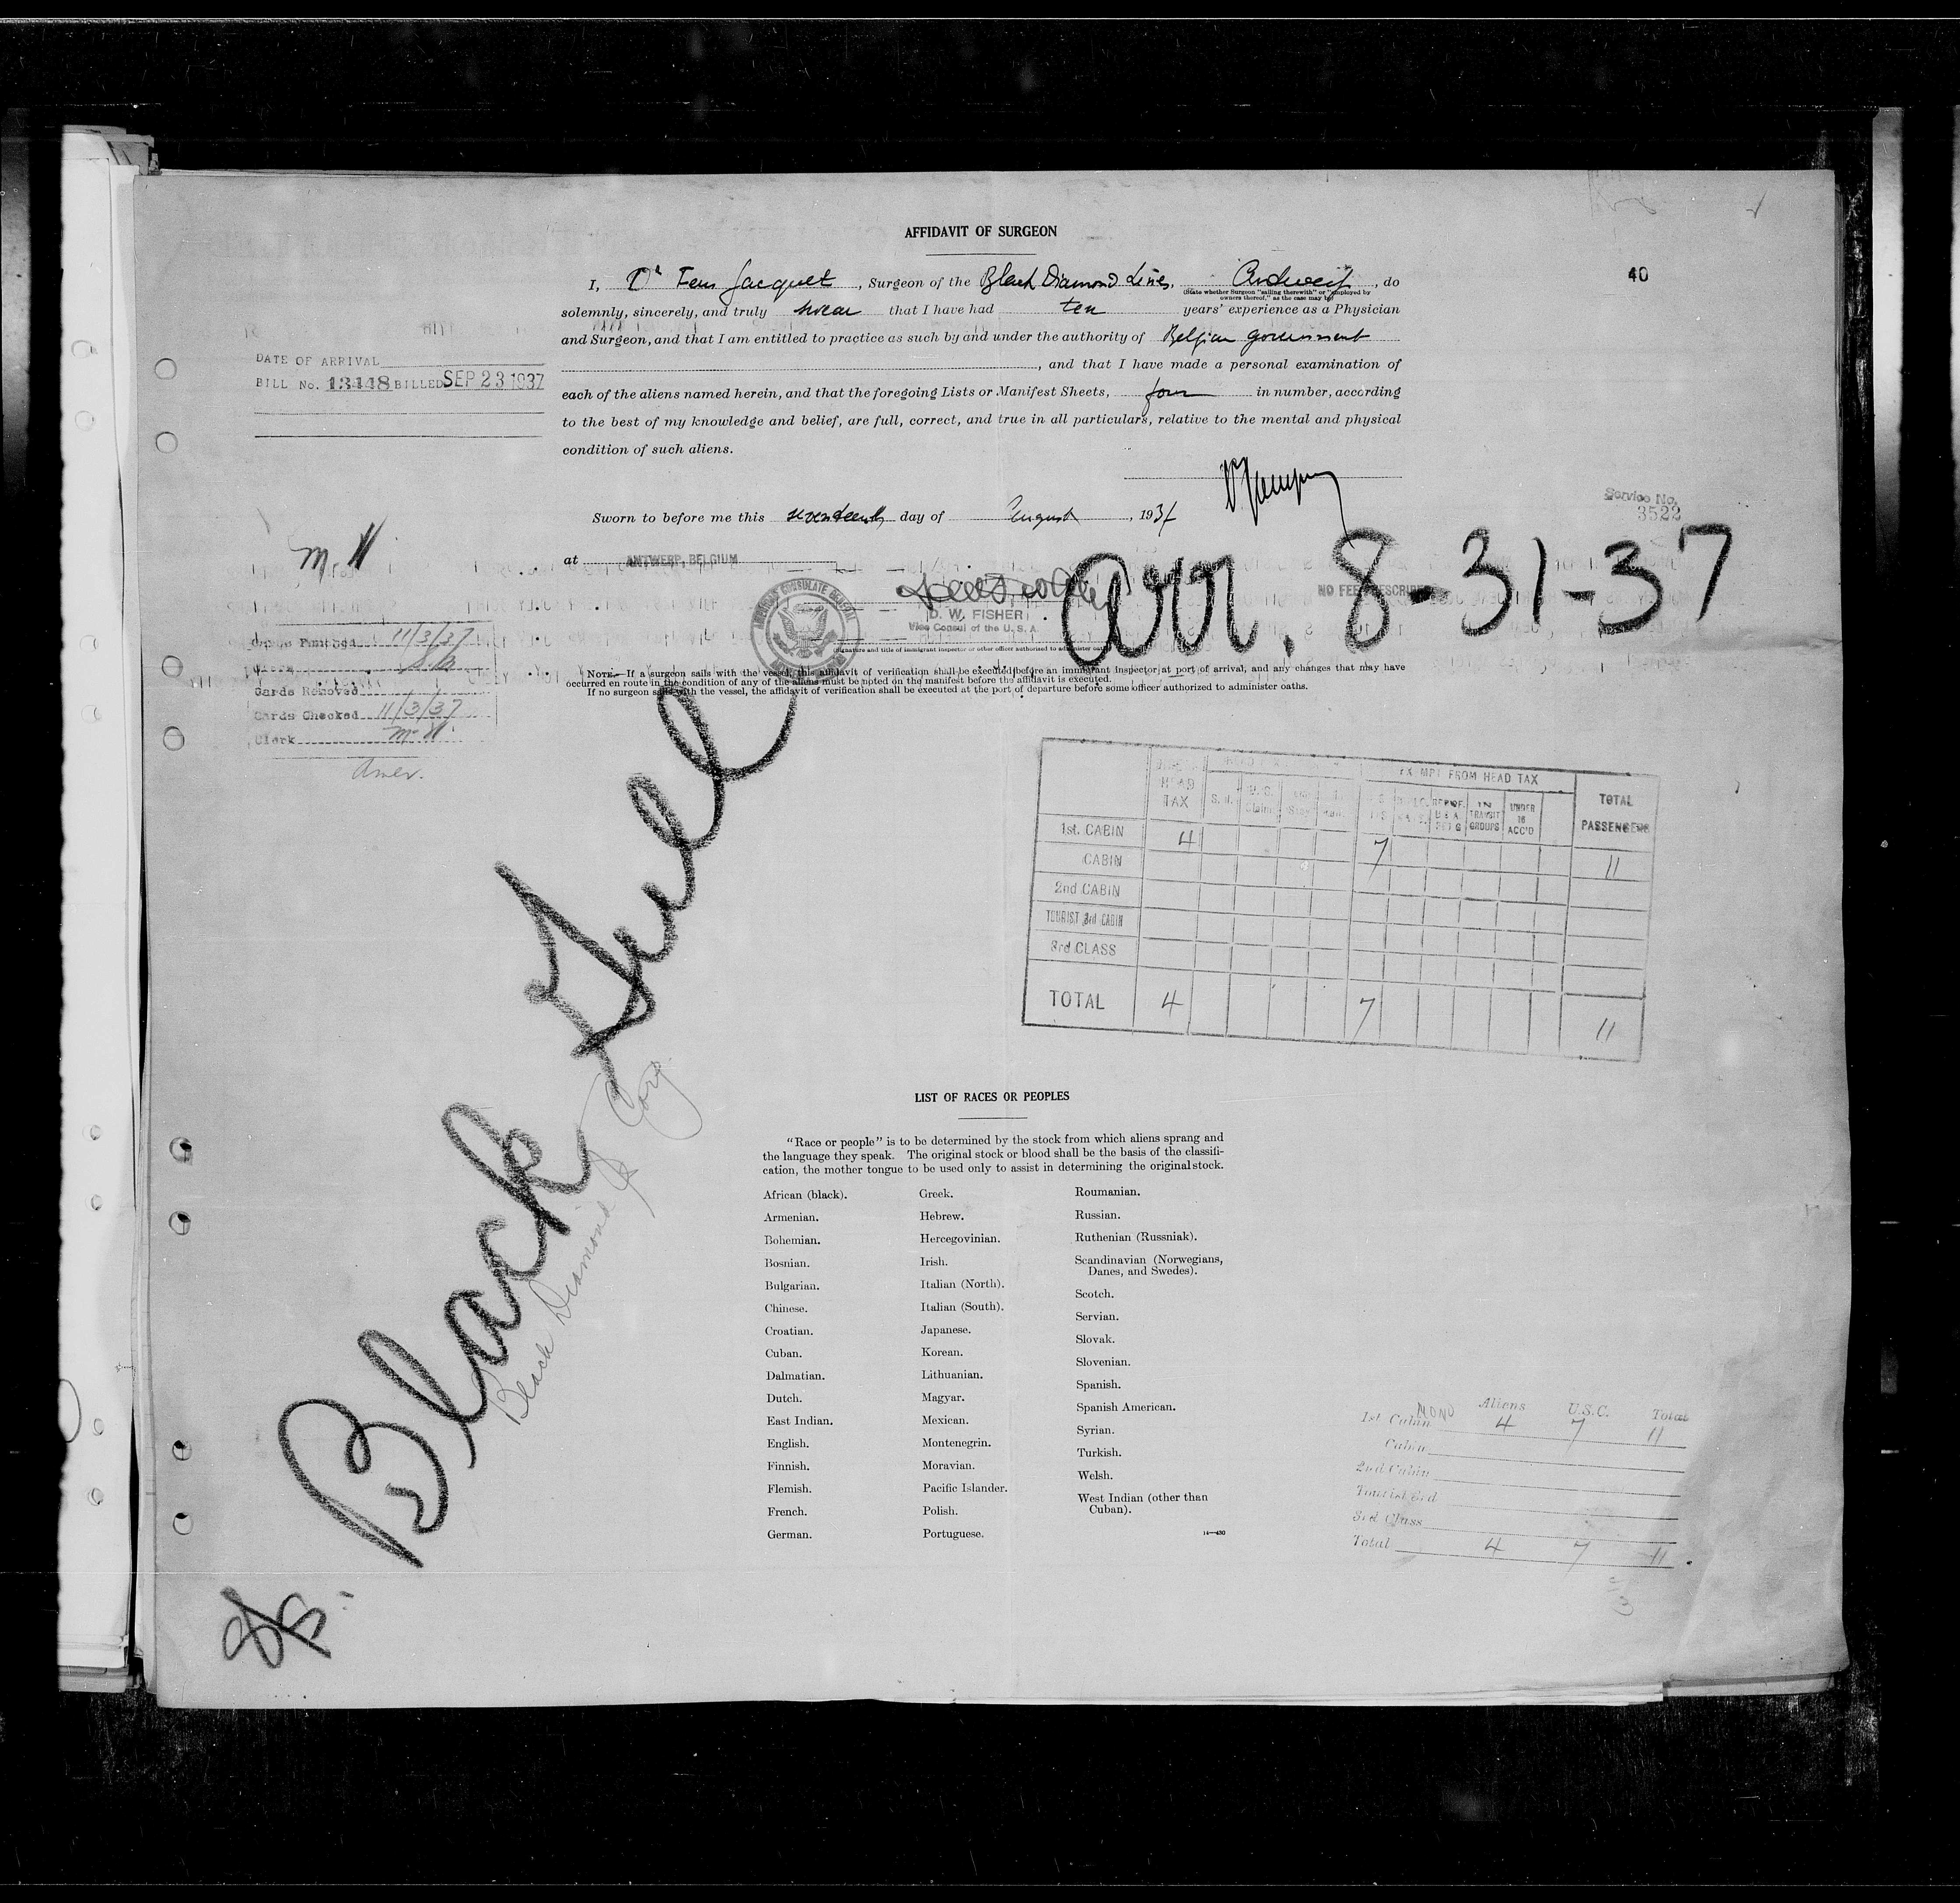 AFFIDAVIT OF SURGEON
40
I, Dr Jacquet, Surgeon of the Black Diamond Lines, do
(State whether Surgeon "sailing therewith" or "employed by
owners thereof," as the case may be)
solemnly, sincerely, and truly swear that I have had ten years' experience as a Physician
and Surgeon, and that I am entitled to practice as such by and under the authority of Belgian government
, and that I have made a personal examination of
each of the aliens named herein, and that the foregoing Lists or Manifest Sheets, four in number, according
to the best of my knowledge and belief, are full, correct, and true in all particulars, relative to the mental and physical
condition of such aliens.
DATE OF ARRIVAL
BILL No. 13448 BILLED SEP 23 1937
Sworn to before me this seventeenth day of August, 1937
at ANTWERP, BELGIUM
Service No.
3522
arr. 8-31-37
NO FEE PRESCRIBED
AMERICAN CONSULATE GENERAL
D. W. FISHER
Vice Consul of the U. S. A.
(Signature and title of immigrant inspector or other officer authorized to administer oaths)
NOTE.—If a surgeon sails with the vessel, this affidavit of verification shall be executed before an immigrant inspector at port of arrival, and any changes that may have
occurred en route in the condition of any of the aliens must be noted on the manifest before the affidavit is executed.
If no surgeon sails with the vessel, the affidavit of verification shall be executed at the port of departure before some officer authorized to administer oaths.
Cards Punched 11/3/37
Clerk
Cards Removed
Cards Checked 11/3/37
Clerk
Amer.
HEAD TAX
EXEMPT FROM HEAD TAX
TOTAL PASSENGERS
IN TRANSIT GROUPS
UNDER 16 ACC'D
1st. CABIN 4 7 11
CABIN
2nd CABIN
TOURIST 3rd CABIN
3rd CLASS
TOTAL 4 7 11
SS. Black Gull
Black Diamond SS Corp
LIST OF RACES OR PEOPLES
"Race or people" is to be determined by the stock from which aliens sprang and
the language they speak. The original stock or blood shall be the basis of the classifi-
cation, the mother tongue to be used only to assist in determining the original stock.
African (black).
Armenian.
Bohemian.
Bosnian.
Bulgarian.
Chinese.
Croatian.
Cuban.
Dalmatian.
Dutch.
East Indian.
English.
Finnish.
Flemish.
French.
German.
Greek.
Hebrew.
Hercegovinian.
Irish.
Italian (North).
Italian (South).
Japanese.
Korean.
Lithuanian.
Magyar.
Mexican.
Montenegrin.
Moravian.
Pacific Islander.
Polish.
Portuguese.
Roumanian.
Russian.
Ruthenian (Russniak).
Scandinavian (Norwegians,
Danes, and Swedes).
Scotch.
Servian.
Slovak.
Slovenian.
Spanish.
Spanish American.
Syrian.
Turkish.
Welsh.
West Indian (other than
Cuban).
14—430
MONO Aliens U.S.C. Total
1st Cabin 4 7 11
Cabin
2nd Cabin
Tourist 3rd
3rd Class
Total 4 7 11